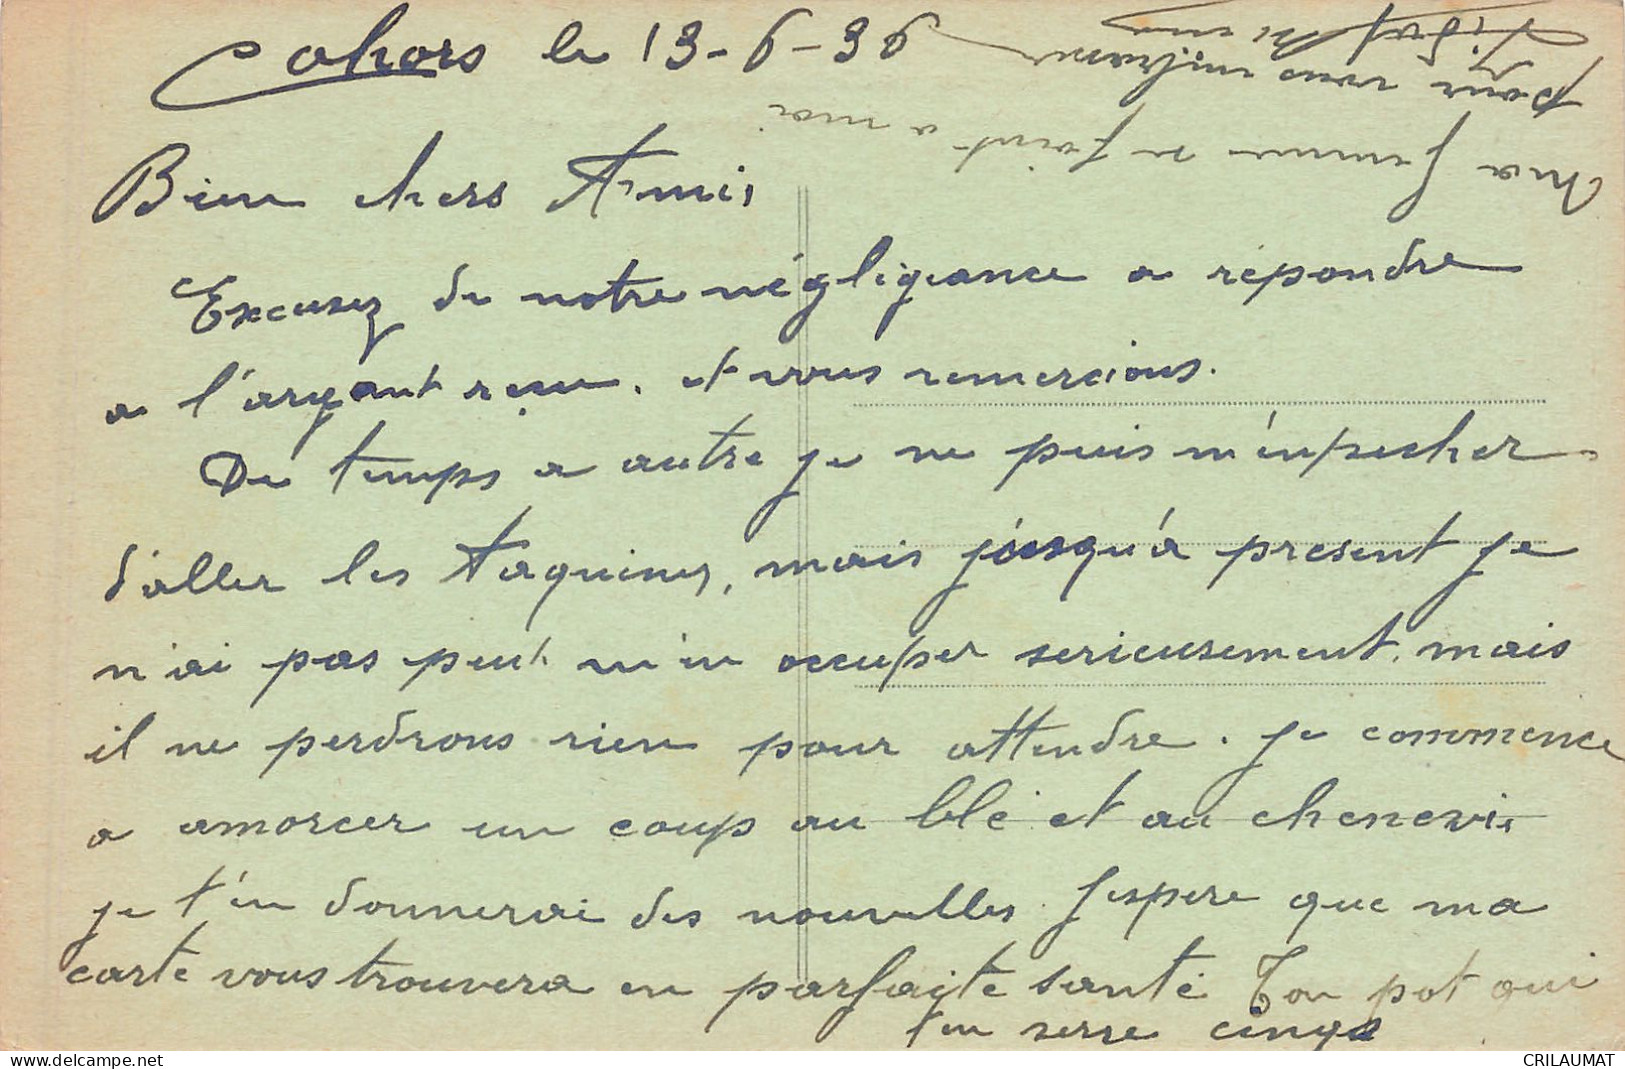 Cahors le 13-6-36
Bien chers Amis
Excusez de notre négligeance a repondre
a l'argant reçu. et vous remercions.
De temps a autre je ne puis m'enpecher
d'aller les taquiner, mais jusqu'a present je
n'ai pas peut m'en occuper serieusement. mais
il ne perdrons rien pour attendre. je commence
a amorcer un coup au blé et au chenevis
je t'en donnerai des nouvelles. J'espere que ma
carte vous trouvera en parfaite santé Ton pot qui
t'en serre cinqs
Ma femme se joint a moi
pour vous embrasser
CRILAUMAT